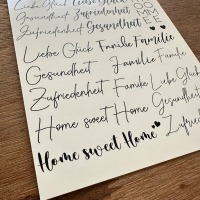 Liebe Glück Liebe Glück
Gesundheit Zufriedenheit
Zufriedenheit Gesundheit
Liebe Glück Familie Familie
Gesundheit Familie Familie
Zufriedenheit Familie Liebe Glück
Home sweet Home Gesundheit
Home sweet Home Zufried